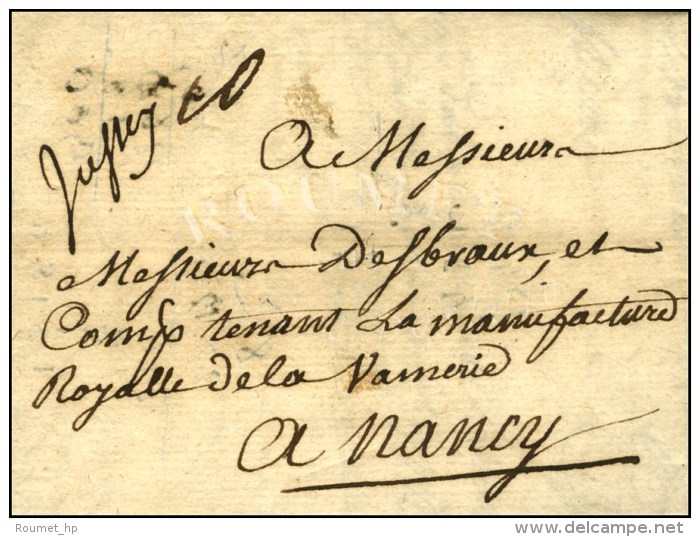 Jussey 10
A Messieurs
Messieurs Desbraux, et
Comp tenant La manufacture
Royalle de la Vannerie
a Nancy
Roumet_hp
delcampe.net